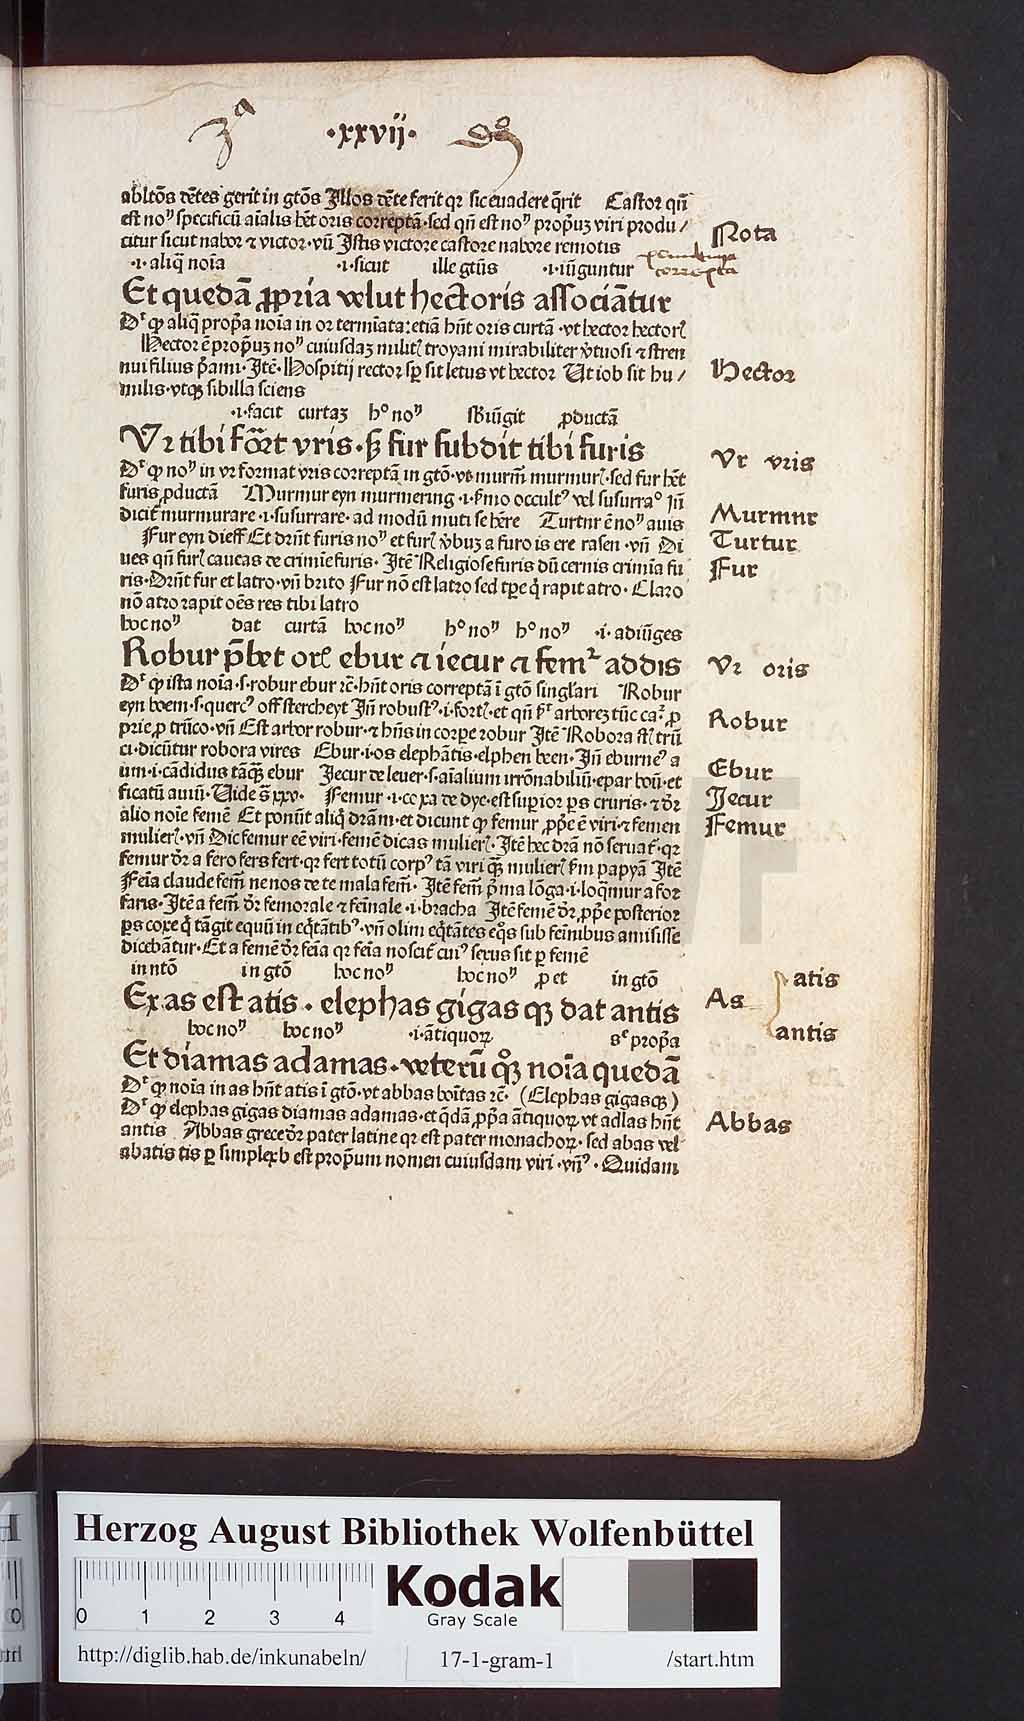 3ᵃ ·xxvij·
abltōs dētes gerit in gtōs Illos dēte ferit qꝛ sic euadere q̄rit Castor qn̄
est noⁿ specificū aīalis hēt oris correptā·sed qn̄ est noⁿ prop̄uꝫ viri produ/
citur sicut nabor ⁊ victor·vn̄ Istis victore castore nabore remotis
Nota
·i·aliq̄ noīa ·i·sicut ille gtūs ·i·iūguntur
correpta
Et quedā ꝓpria velut hectoris associātur
Dʳ ꝙ aliq̄ prop̄a noīa in or termīata:etiā hn̄t oris curtā·vt hector hectorꝭ
Hector ē prop̄uꝫ noⁿ cuiusdaꝫ militꝭ troyani mirabiliter v̓tuosi ⁊ stren
nui filius p̄ami·Itē·Hospitij rector sꝑ sit letus vt hector Ut iob sit hu/
Hector
milis·vtqꝫ sibilla sciens
·i·facit curtaꝫ h° noⁿ sbiūgit ꝓductā
Vr tibi for̄t vris·sꝫ fur subdit tibi furis
Vr vris
Dʳ ꝙ noⁿ in vr format vris correptā in gtō·vt murm̄ murmurꝭ·sed fur hēt
furis ꝓductā Murmur eyn murmering·i·s̓mo occultꝰ vel susurra° Jn̄
dicit᷑ murmurare·i·susurrare·ad modū muti se hēre Turtur ē noⁿ auis
Murmur
Turtur
Fur eyn dieff Et dr̄nt furis noⁿ et furꝭ v̓buꝫ a furo is ere rasen·vn̄ Di
ues qn̄ furꝭ caueas de crimīe furis·Itē Religiose furis dū cernis crimīa fu
Fur
ris·Dr̄nt fur et latro·vn̄ brito Fur nō est latro sed tꝑe q̄ rapit atro·Claro
nō atro rapit oēs res tibi latro
hoc noⁿ dat curtā hoc noⁿ h° noⁿ h° noⁿ ·i·adiūges
Robur p̄bet orꝭ ebur ⁊ iecur ⁊ femꝛ addis
Vr oris
Dʳ ꝙ ista noīa·s·robur ebur ⁊c̄·hn̄t oris correptā ī gtō singlari Robur
eyn boem·s·quercꝰ off stercheyt Jn̄ robustꝰ·i·fortꝭ·et qn̄ arboreꝫ tūc ꝓ
Robur
prie ꝓ trūco·vn̄ Est arbor robur·⁊ hn̄s in corpe robur Itē Robora trū
ci·dicūtur robora vires Ebur·i·os elephātis·elphen been·Jn̄ eburneꝰ a
Ebur
um·i·cādidus tāqꝫ ebur Jecur de leuer·s·aīalium irrōnabiliū·epar boū·et
Jecur
ficatū auiū·Uide s̄ xxv· Femur·i·coxa de dye·est suꝑior ꝑs cruris·⁊ dr̄
Femur
alio noīe femē Et ponūt aliq̄ dr̄am·et dicunt ꝙ femur ꝓp̄e ē viri·⁊ femen
mulierꝭ·vn̄ Dic femur eē viri·femē dicas mulierꝭ·Itē hec dr̄a nō seruat᷑·qꝛ
femur dr̄ a fero fers fert·qꝛ fert totū corpꝰ tā viri qꝫ mulierꝭ s̓m papyā Itē
Feīa claude fem̄ ne nos de te mala fem̄·Itē fem̄ p̄ma lōga·i·loq̄mur a for
faris·Itē a fem̄ dr̄ femorale ⁊ feīnale·i·bracha Itē femē dr̄ ꝓp̄e posterior
ꝑs coxe q̄ tāgit equū in eq̄tātibꝰ·vn̄ olim eq̄tātes eq̄s sub feīnibus amisisse
dicebātur·Et a femē dr̄ feīa qꝛ feīa noscit᷑ cuiꝰ sexus sit ꝑ femē
in ntō in gtō hoc noⁿ hoc noⁿ ꝓ et in gtō
Ex as est atis·elephas gigas qꝫ dat antis
As atis
antis
hoc noⁿ hoc noⁿ ·i·ātiquoꝝ sᵉ prop̄a
Et diamas adamas·veterū qꝫ noīa quedā
Dʳ ꝙ noīa in as hn̄t atis ī gtō·vt abbas boītas ⁊c̄· (Elephas gigasqꝫ)
Dʳ ꝙ elephas gigas diamas adamas·et q̄dā ꝓp̄a ātiquoꝝ vt adlas hn̄t
Abbas
antis Abbas grece dr̄ pater latine qꝛ est pater monachoꝝ·sed abas vel
abatis tis ꝑ simplex b est prop̄um nomen cuiusdam viri·vn̄ꝰ·Quidam
Herzog August Bibliothek Wolfenbüttel
0 1 2 3 4
Kodak
Gray Scale
http://diglib.hab.de/inkunabeln/ 17-1-gram-1 /start.htm